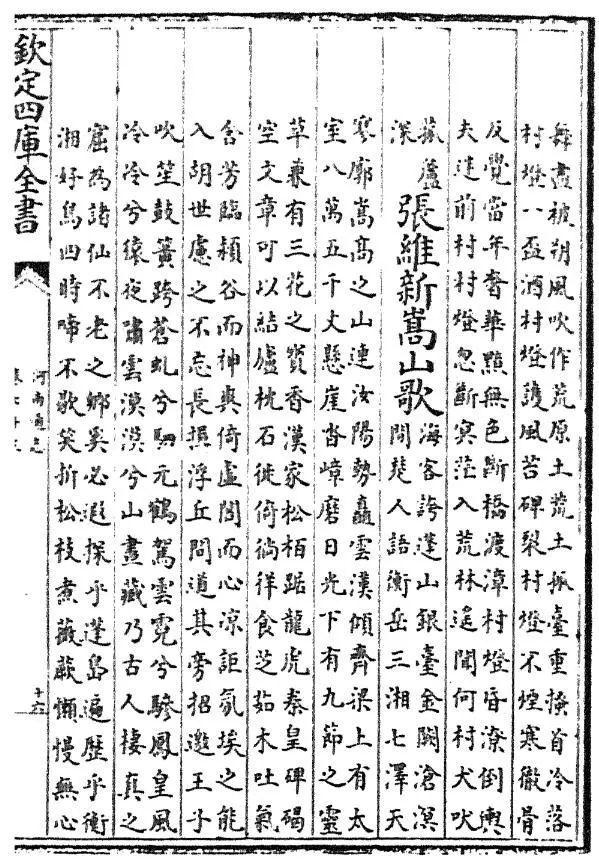 舞盡被朔風吹作荒原土荒土振臺重搔首冷落
村燈一盃酒村燈護風苔碑裂村燈不煙寒徹骨
反覺當年奢華顯無色斷橋渡漳村燈昏潦倒輿
夫迷前村村燈忽斷㝠茫入荒林遥聞何村犬吠
菰蘆深
張維新嵩山歌
海客誇蓬山銀臺金闕滄溟
間楚人語衡岳三湘七澤天
寥廓嵩高之山連汝陽勢矗雲漢傾齊梁上有太
室八萬五千丈懸崖沓嶂磨日光下有九節之靈
草兼有三花之寳香漢家松栢踞龍虎秦皇碑碣
空文章可以結廬枕石徙倚徜徉食芝茹木吐氣
含芳臨潁谷而神爽倚盧閭而心凉詎氛埃之能
入胡世慮之不忘長揖浮丘問道其旁招邀王子
吹笙鼓簧跨蒼虬兮駟元鶴駕雲霓兮驂鳳皇風
冷冷兮猿夜嘯雲漠漠兮山晝藏乃古人棲真之
窟為諸仙不老之鄉奚必遐探乎蓬島遍歴乎衡
湘好鳥四時啼不歇笑折松枝煮薇蕨懶慢無心
欽定四庫全書
河南通志
十六